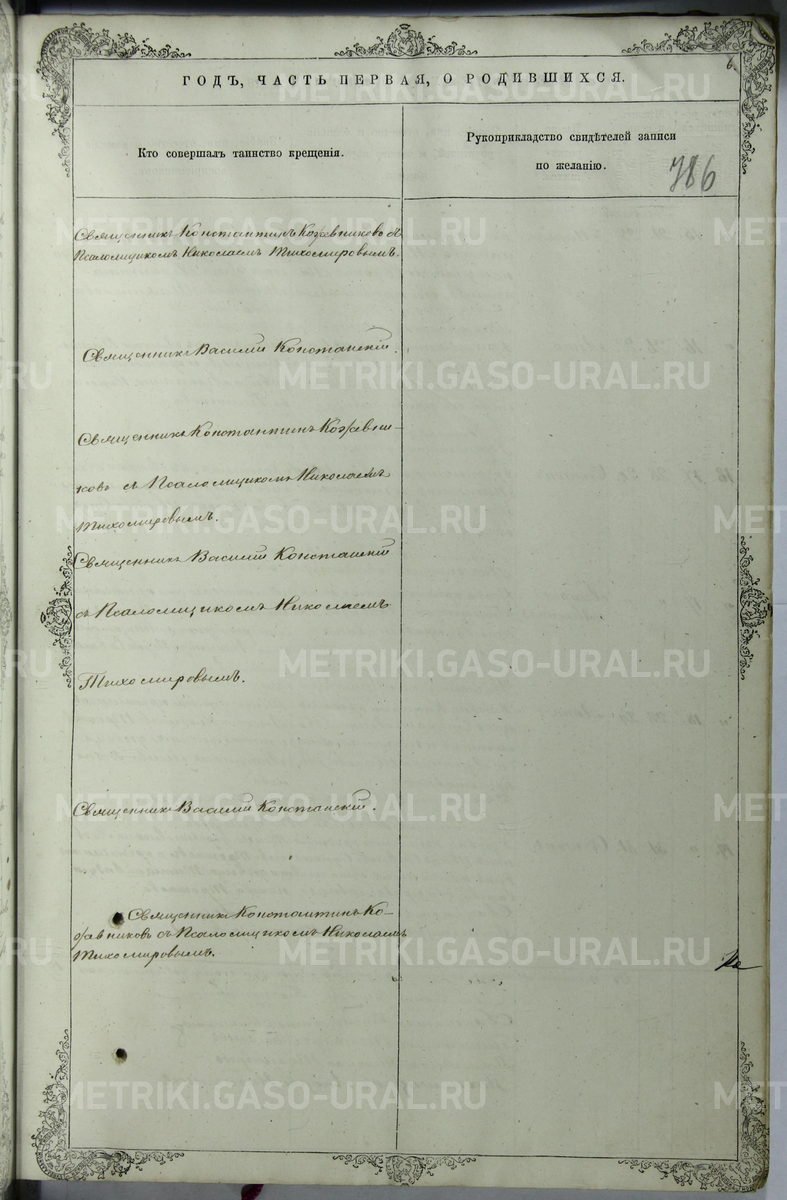 6
ГОДЪ, ЧАСТЬ ПЕРВАЯ, О РОДИВШИХСЯ.
Кто совершалъ таинство крещенія.
Рукоприкладство свидѣтелей записи
по желанію.
786
Священникъ Константинъ Кожевниковъ съ
Псаломщикомъ Николаемъ Тихомировымъ.
Священникъ Василій Констанскій.
Священникъ Константинъ Кожевни-
ковъ съ Псаломщикомъ Николаемъ
Тихомировымъ.
Священникъ Василій Констанскій
съ Псаломщикомъ Николаемъ
Тихомировымъ.
Священникъ Василій Констанскій.
Священникъ Константинъ Ко-
жевниковъ съ Псаломщикомъ Николаемъ
Тихомировымъ.
METRIKI.GASO-URAL.RU